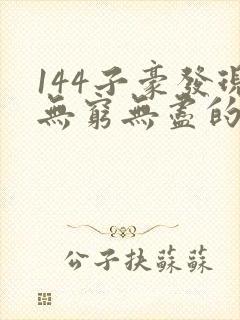 144子豪發現
無窮無盡的
公子扶蘇蘇